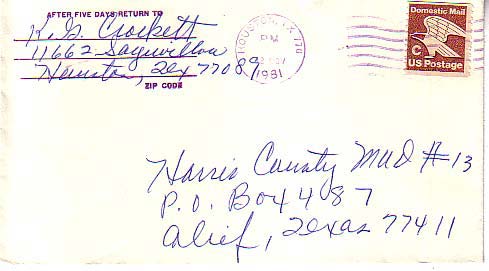 AFTER FIVE DAYS RETURN TO
K. G. Crockett
11662 Sagewillow
Houston, Tex 77089
ZIP CODE
HOUSTON, TX 770
PM
1981
Domestic Mail
C
US Postage
Harris County Mud #13
P.O. Box 4087
Alief, Texas 77411